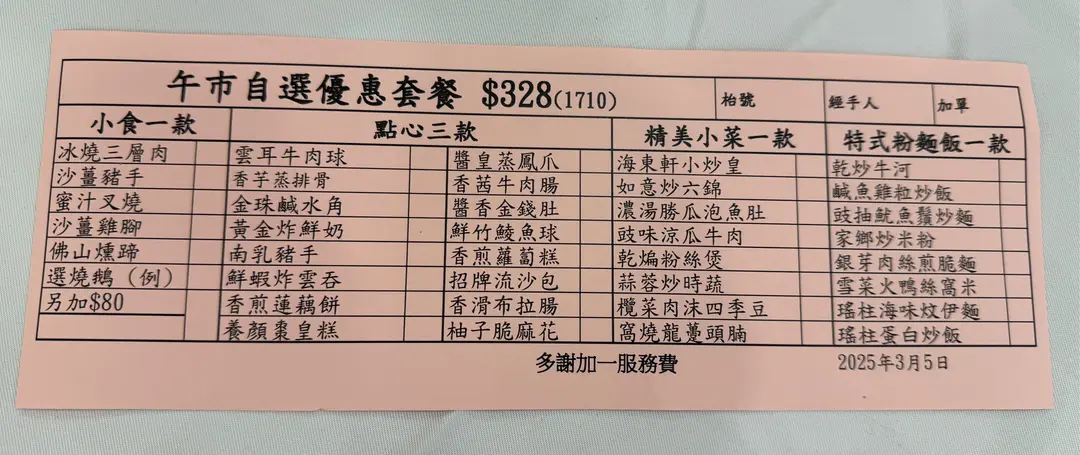 午市自選優惠套餐 $328(1710)
枱號
經手人
加單
小食一款
點心三款
精美小菜一款
特式粉麵飯一款
冰燒三層肉
雲耳牛肉球
醬皇蒸鳳爪
海東軒小炒皇
乾炒牛河
沙薑豬手
香芋蒸排骨
香茜牛肉腸
如意炒六錦
鹹魚雞粒炒飯
蜜汁叉燒
金珠鹹水角
醬香金錢肚
濃湯勝瓜泡魚肚
豉抽魷魚鬚炒麵
沙薑雞腳
黃金炸鮮奶
鮮竹鯪魚球
豉味涼瓜牛肉
家鄉炒米粉
佛山燻蹄
南乳豬手
香煎蘿蔔糕
乾煸粉絲煲
銀芽肉絲煎脆麵
選燒鵝（例）
鮮蝦炸雲吞
招牌流沙包
蒜蓉炒時蔬
雪菜火鴨絲窩米
另加$80
香煎蓮藕餅
香滑布拉腸
欖菜肉沫四季豆
瑤柱海味炆伊麵
養顏棗皇糕
柚子脆麻花
窩燒龍躉頭腩
瑤柱蛋白炒飯
多謝加一服務費
2025年3月5日